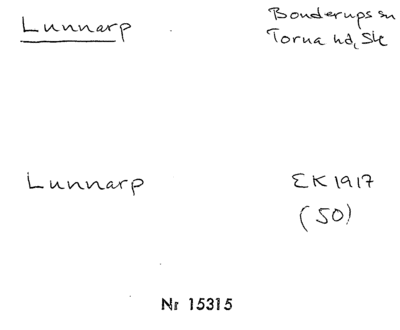 Lunnarp
Bonderups sn
Torna hd, Sk
Lunnarp
EK 1917
(50)
Nr 15315